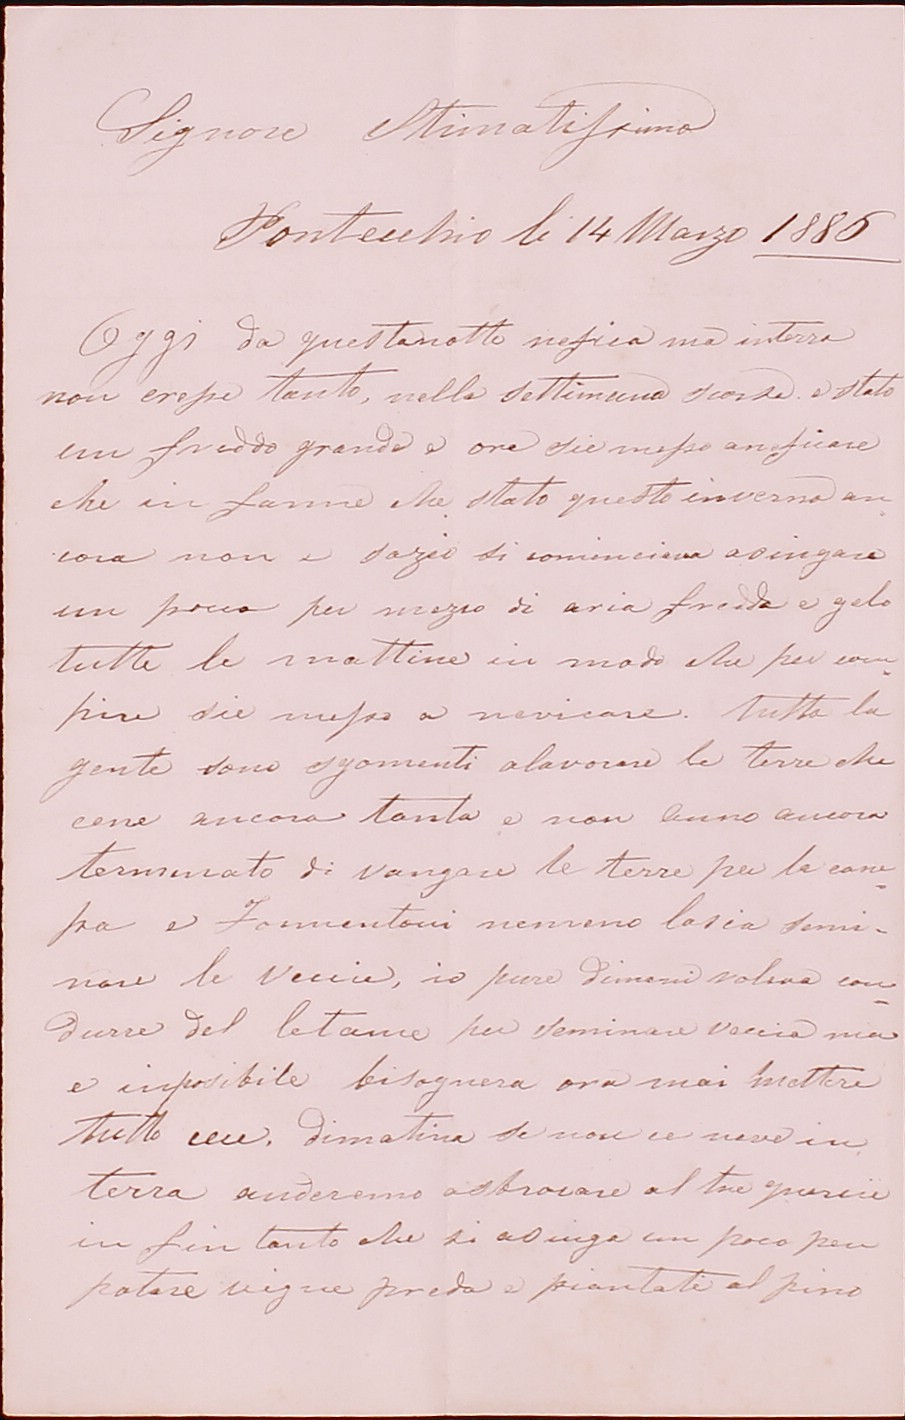 Signore Stimatissimo
Pontecchio li 14 Marzo 1886
Oggi da questanotte nefica ma interra
non cresse tanto, nella settimana scorsa e stato
un freddo grande e ora sie messo aneficare
che in fanne che stato questo inverno an
cora non e sazio si cominciava asingare
un poco per mezzo di aria fredda e gelo
tutte le mattine in modo che per com-
pire sie messo a nevicare. tutta la
gente sono sgomenti alavorare le terre che
cene ancora tanta e non anno ancora
terminato di vangare le terre per la cane-
pa e Formentoni nemeno lascia semi-
nare le veccie, io pure dimani voleva con-
durre del letame per seminare veccia ma
e inposibile bisognera ora mai mettere
tutto . dimatina se non ce neve in
terra anderemo asbrocare al tre quercie
in fin tanto che si asinga un poco per
potare vigne preda e piantate al pino